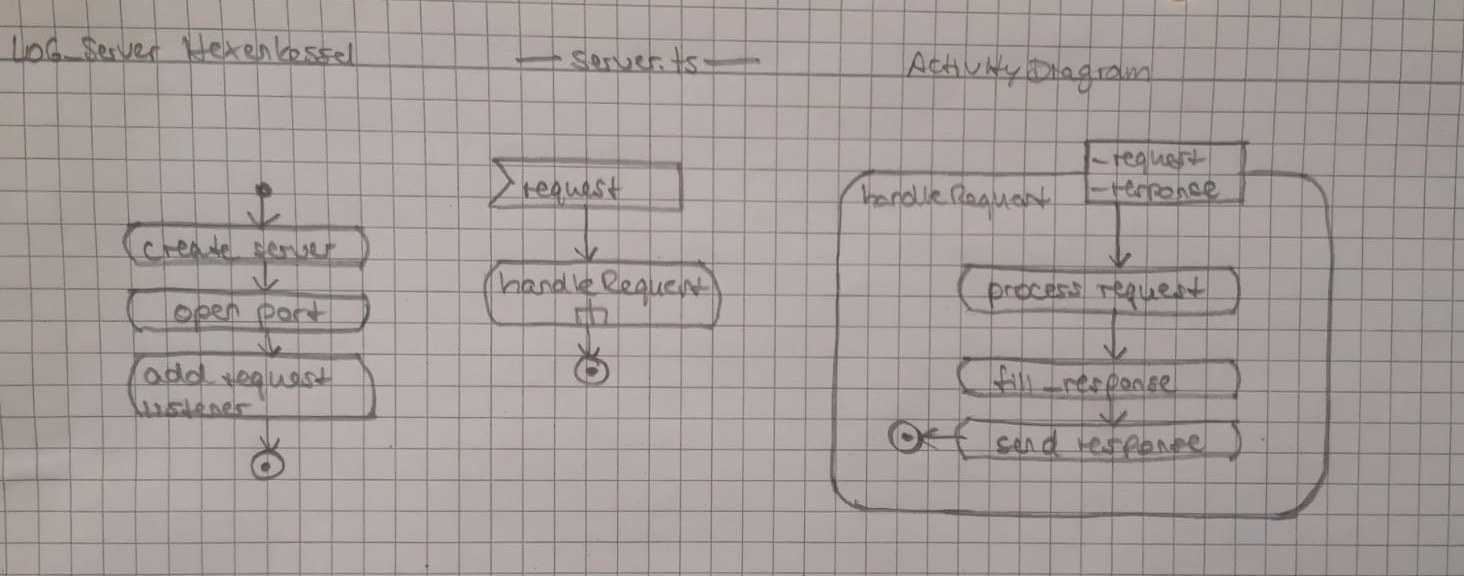 LOG_Server Hexenkessel
— server.ts —
Activity Diagram
create server
open port
add request
listener
request
handleRequest
handleRequest
- request
- response
process request
fill_response
send response